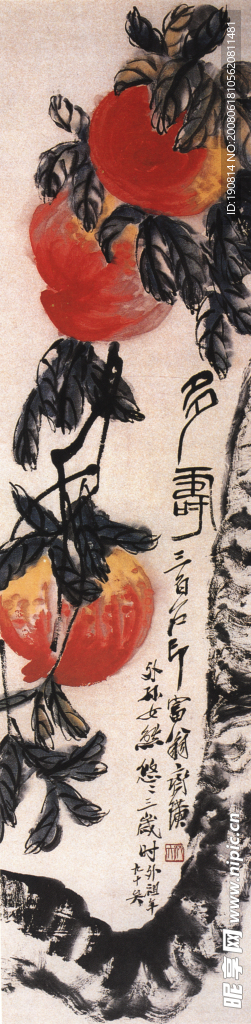 多壽
三百石印富翁齊璜
外孫女熊悠〻三歲時外祖年
九十矣
ID:190814 NO:20080618105620811481
昵享网 www.nipic.cn